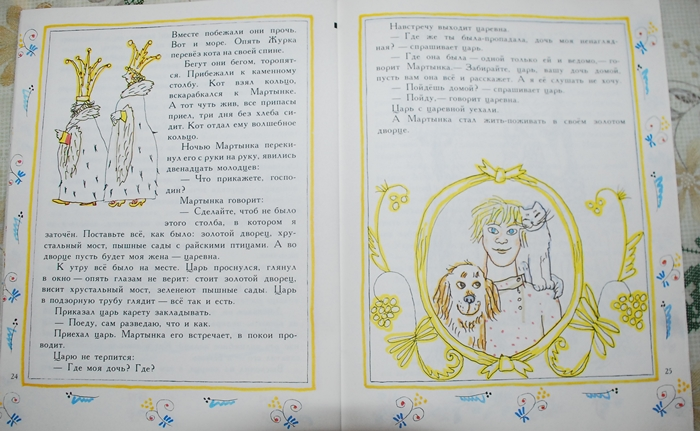 Вместе побежали они прочь.
Вот и море. Опять Журка
перевёз кота на своей спине.
Бегут они бегом, торопят-
ся. Прибежали к каменному
столбу. Кот взял кольцо,
вскарабкался к Мартынке.
А тот чуть жив, все припасы
приел, три дня без хлеба си-
дит. Кот отдал ему волшебное
кольцо.
Ночью Мартынка переки-
нул его с руки на руку, явились
двенадцать молодцев:
— Что прикажете, госпо-
дин?
Мартынка говорит:
— Сделайте, чтоб не было
этого столба, в котором я
заточён. Поставьте всё, как было: золотой дворец, хру-
стальный мост, пышные сады с райскими птицами. А во
дворце пусть будет моя жена — царевна.
К утру всё было на месте. Царь проснулся, глянул
в окно — опять глазам не верит: стоит золотой дворец,
висит хрустальный мост, зеленеют пышные сады. Царь
в подзорную трубу глядит — всё так и есть.
Приказал царь карету закладывать.
— Поеду, сам разведаю, что и как.
Приехал царь. Мартынка его встречает, в покои про-
водит.
Царю не терпится:
— Где моя дочь? Где?
24
Навстречу выходит царевна.
— Где же ты была-пропадала, дочь моя ненагляд-
ная? — спрашивает царь.
— Где она была — одной только ей и ведомо, — го-
ворит Мартынка. — Забирайте, царь, вашу дочь домой,
пусть вам она всё и расскажет. А я её слушать не хочу.
— Пойдёшь домой? — спрашивает царь.
— Пойду, — говорит царевна.
Царь с царевной уехали.
А Мартынка стал жить-поживать в своём золотом
дворце.
25